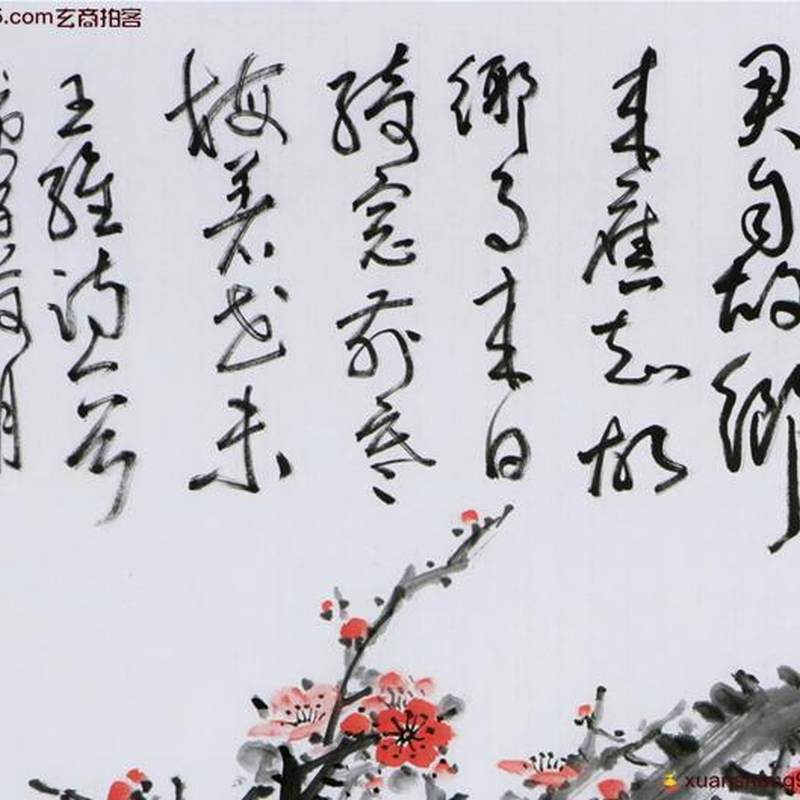 君自故鄉
来應知故
鄉事来日
綺窓前寒
梅着花未
王維詩一首
5.com玄商拍客
xuanshang